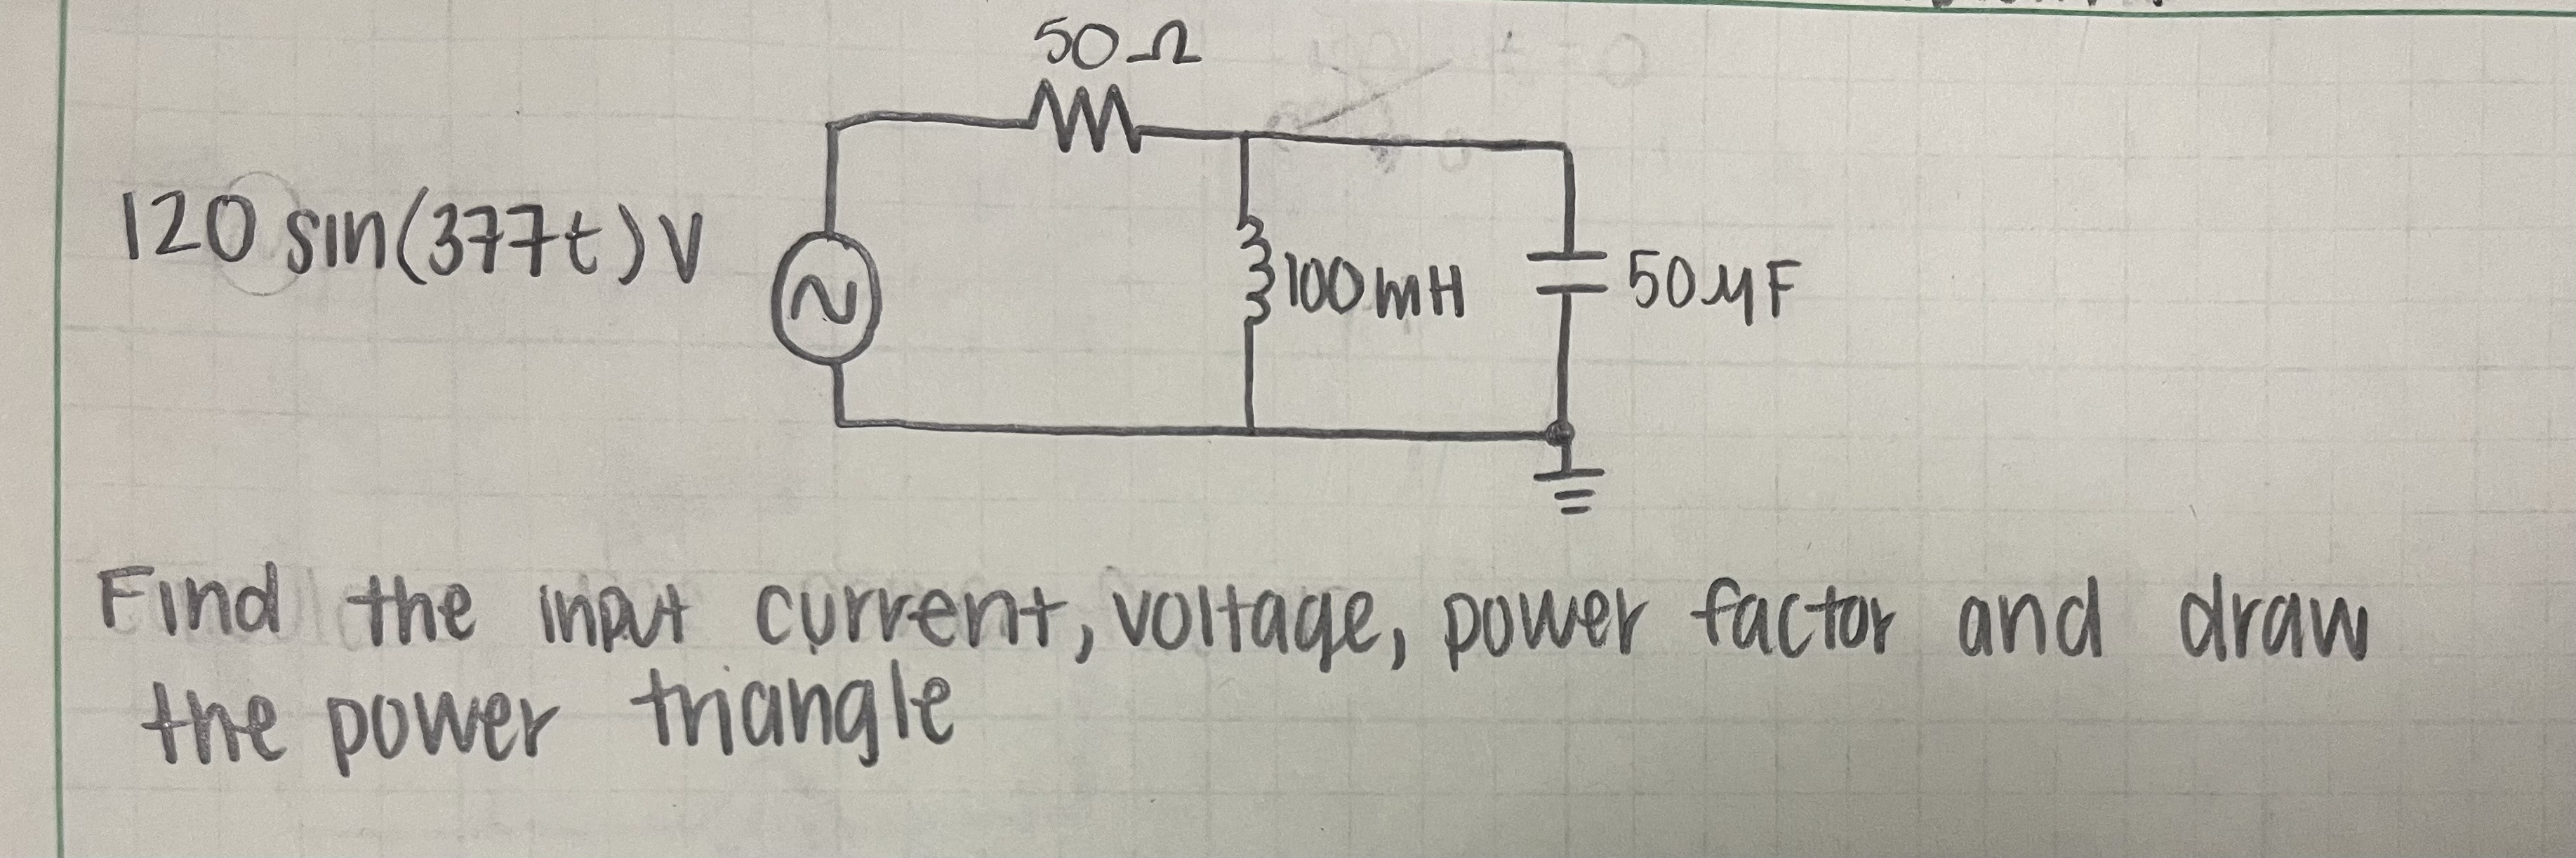 50Ω
120 sin(377t) V
100mH
50μF
Find the input current, voltage, power factor and draw
the power triangle